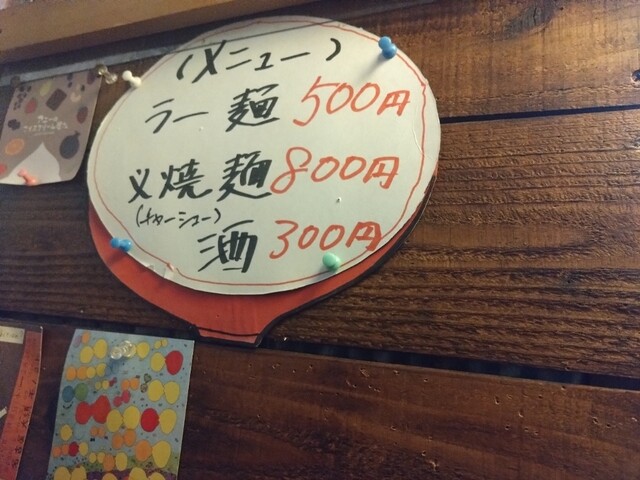 (メニュー)
ラー麺 500円
叉焼麺 800円
(チャーシュー)
酒 300円